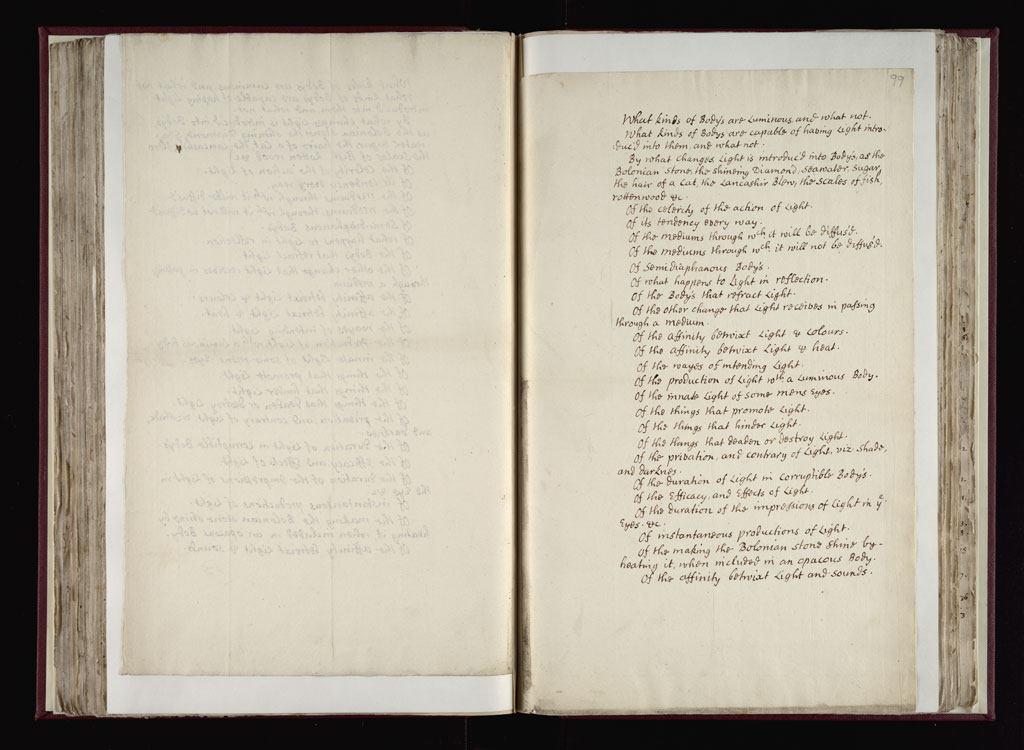 99
What kinds of Bodys are Luminous, and what not.
What kinds of Bodys are capable of having Light intro-
duc'd into them, and what not.
By what changes Light is introduc'd into Bodys, as the
Bolonian Stone, the shineing Diamond, seawater, Sugar,
the hair of a Cat, the Lancashir Blew, the Scales of fish,
rottenwood &c.
Of the celerity of the action of Light.
Of its tendency every way.
Of the mediums through wch it will be diffus'd.
Of the mediums through wch it will not be diffus'd.
Of Semidiaphanous Body's.
Of what happens to Light in reflection.
Of the Body's that refract Light.
Of the other change that Light receives in passing
through a medium.
Of the affinity betwixt Light & Colours.
Of the affinity betwixt Light & heat.
Of the wayes of intending Light.
Of the production of Light wth a Luminous Body.
Of the innate Light of some mens Eyes.
Of the things that promote Light.
Of the things that hinder Light.
Of the things that deaden or destroy Light.
Of the privation, and contrary of Light, viz. shade,
and darknes.
Of the duration of Light in Corruptible Body's.
Of the Efficacy, and Effects of Light.
Of the duration of the impressions of Light in ye
Eyes. &c.
Of instantaneous productions of Light.
Of the making the Bolonian stone shine by-
heating it, when included in an opacous Body.
Of the affinity betwixt Light and sounds.